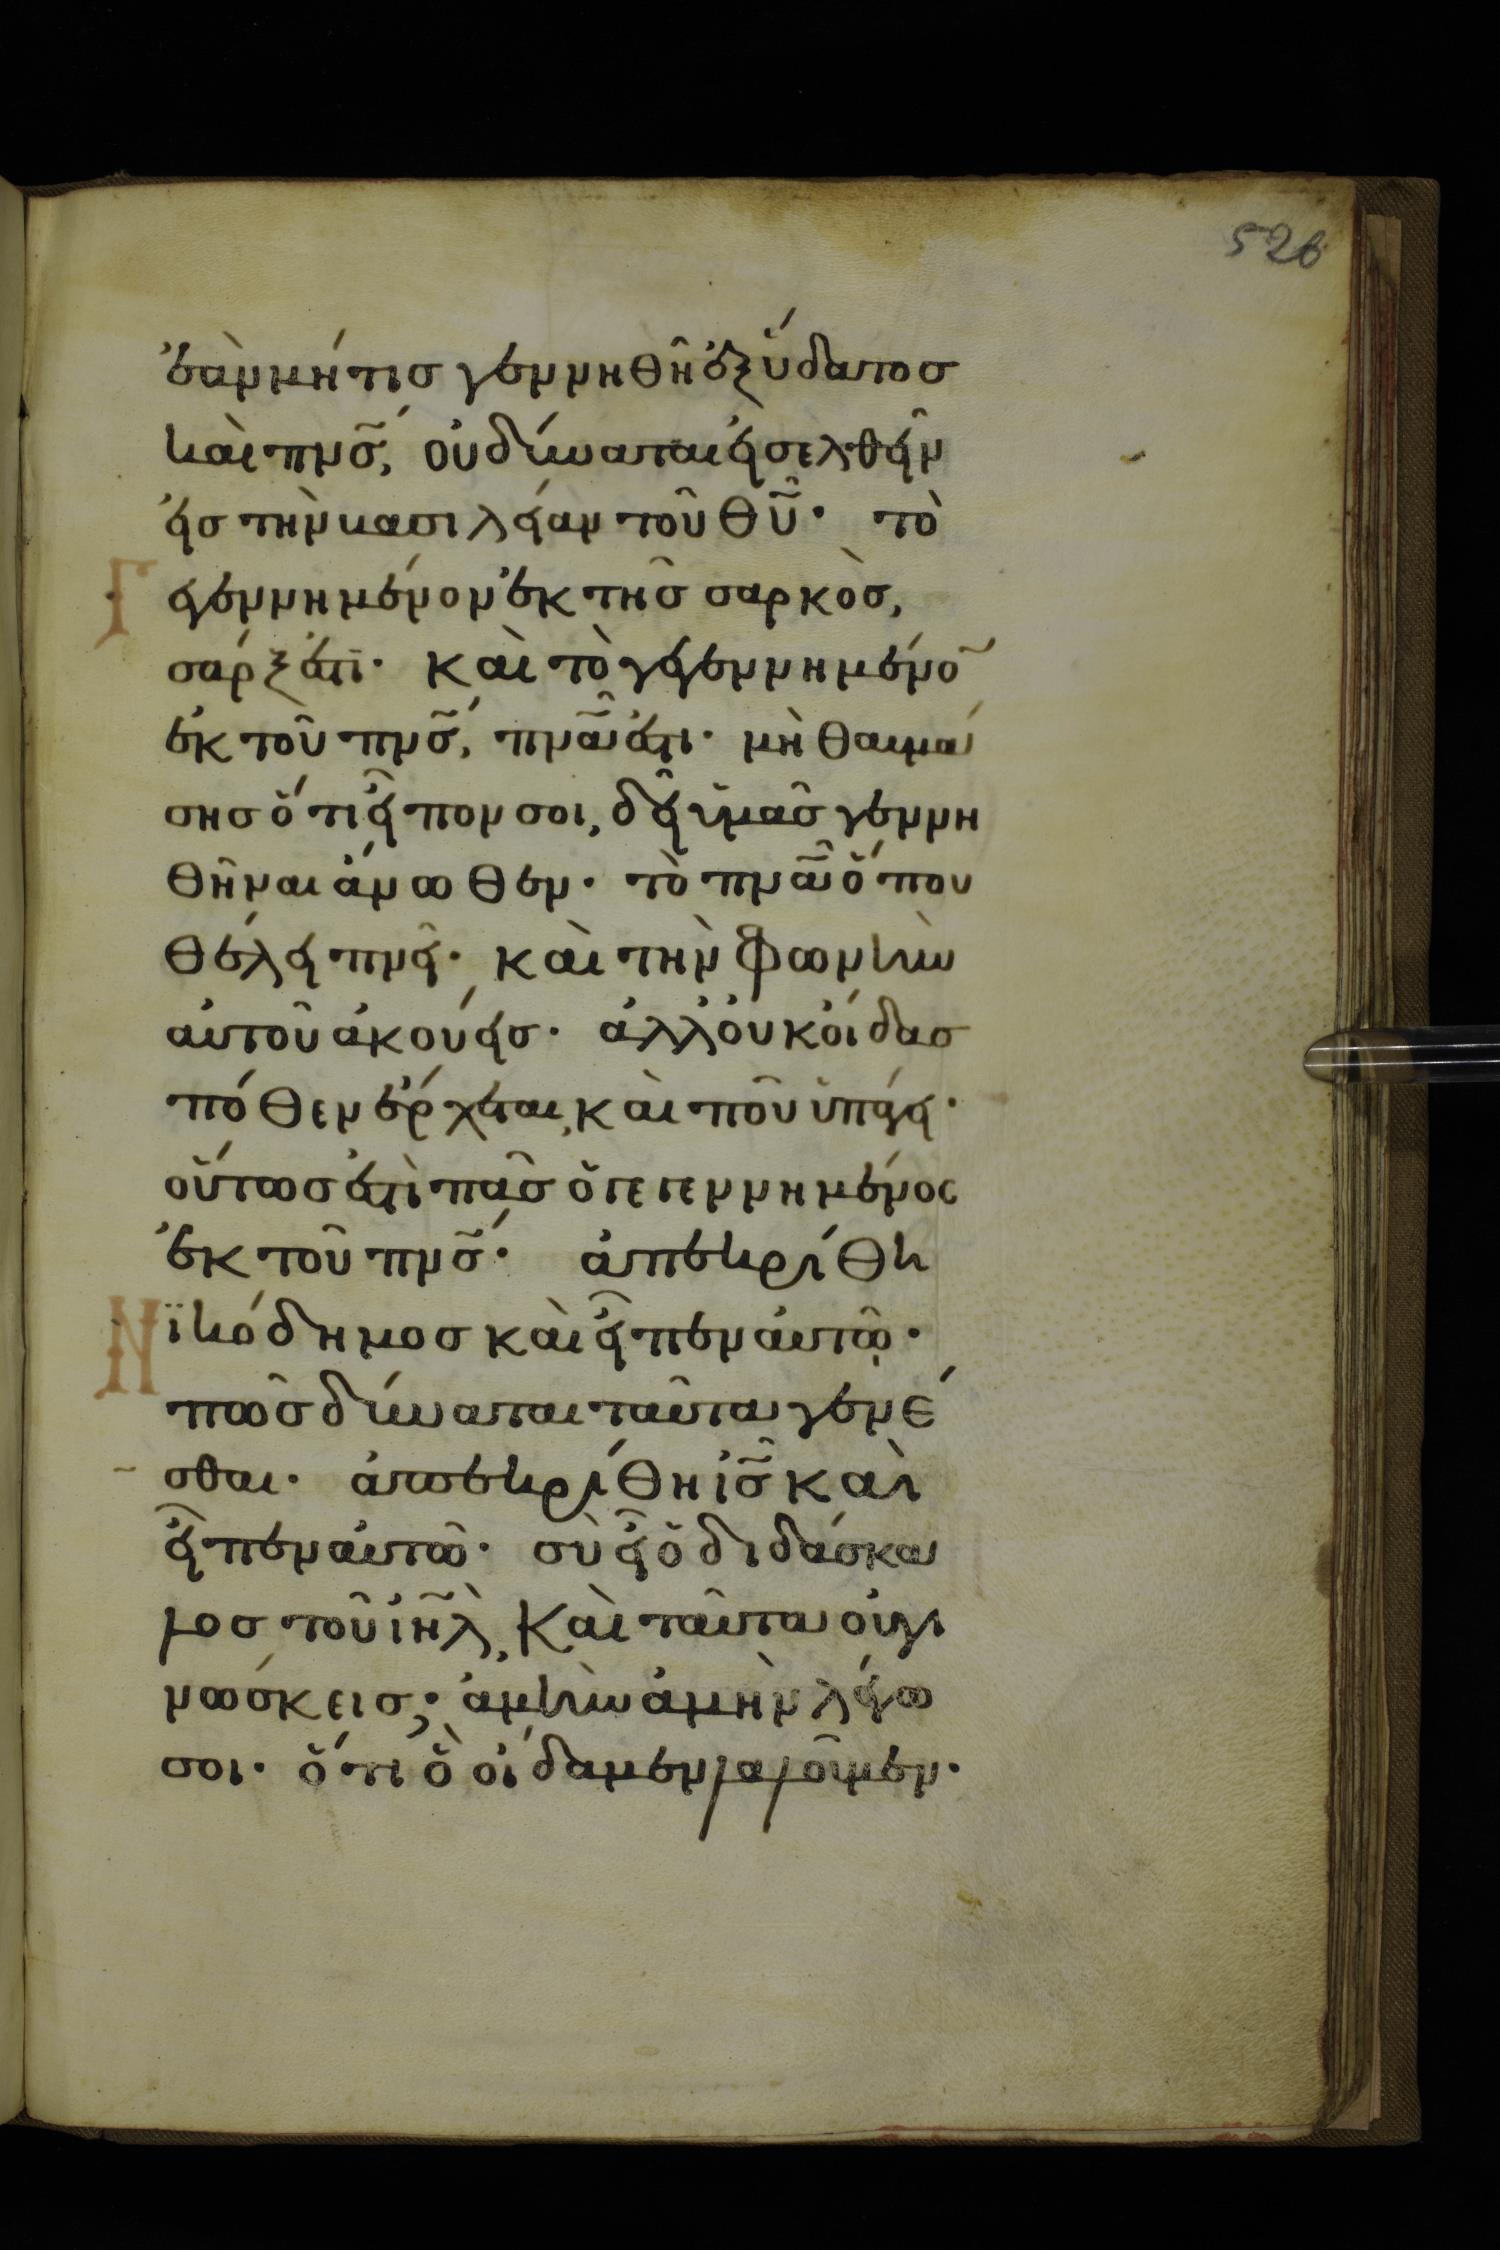 526
ἐὰν μή τις γεννηθῆ ἐξ ὕδατος
καὶ πν̅ς, οὐ δύναται εἰσελθεῖν
εἰς τὴν βασιλείαν τοῦ θ̅υ· τὸ
γεγεννημένον ἐκ τῆς σαρκὸς,
σάρξ ἐστι· καὶ τὸ γεγεννημένο̅
ἐκ τοῦ πν̅ς, πν̅α ἐστι· μὴ θαυμά
σης ὅτι εἶπον σοι, δεῖ ὑμᾶς γεννη
θῆναι ἄνωθεν· τὸ πν̅α ὅπου
θέλει πνεῖ· καὶ τὴν φωνὴν
αὐτοῦ ἀκούεις· ἀλλ οὐκ οἶδας
πόθεν ἔρχεται, καὶ ποῦ ὑπάγει·
οὕτως ἐστὶ πᾶς ὁ γεγεννημένος
ἐκ τοῦ πν̅ς· ἀπεκρίθη
Νϊκόδημος καὶ εἶπεν αὐτῶ·
πῶς δύναται ταῦτα γενέ
σθαι· ἀπεκρίθη ι̅ς καὶ
εἶπεν αὐτῶ· σὺ εἶ ὁ διδάσκα
λος τοῦ ι̅η̅λ, καὶ ταῦτα οὐ γι
νώσκεις; ἀμὴν ἀμὴν λέγω
σοι· ὅτι ὃ οἴδαμεν λαλοῦμεν·